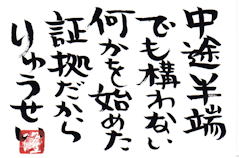 中途半端
でも構わない
何かを始めた
証拠だから
りゅうせい